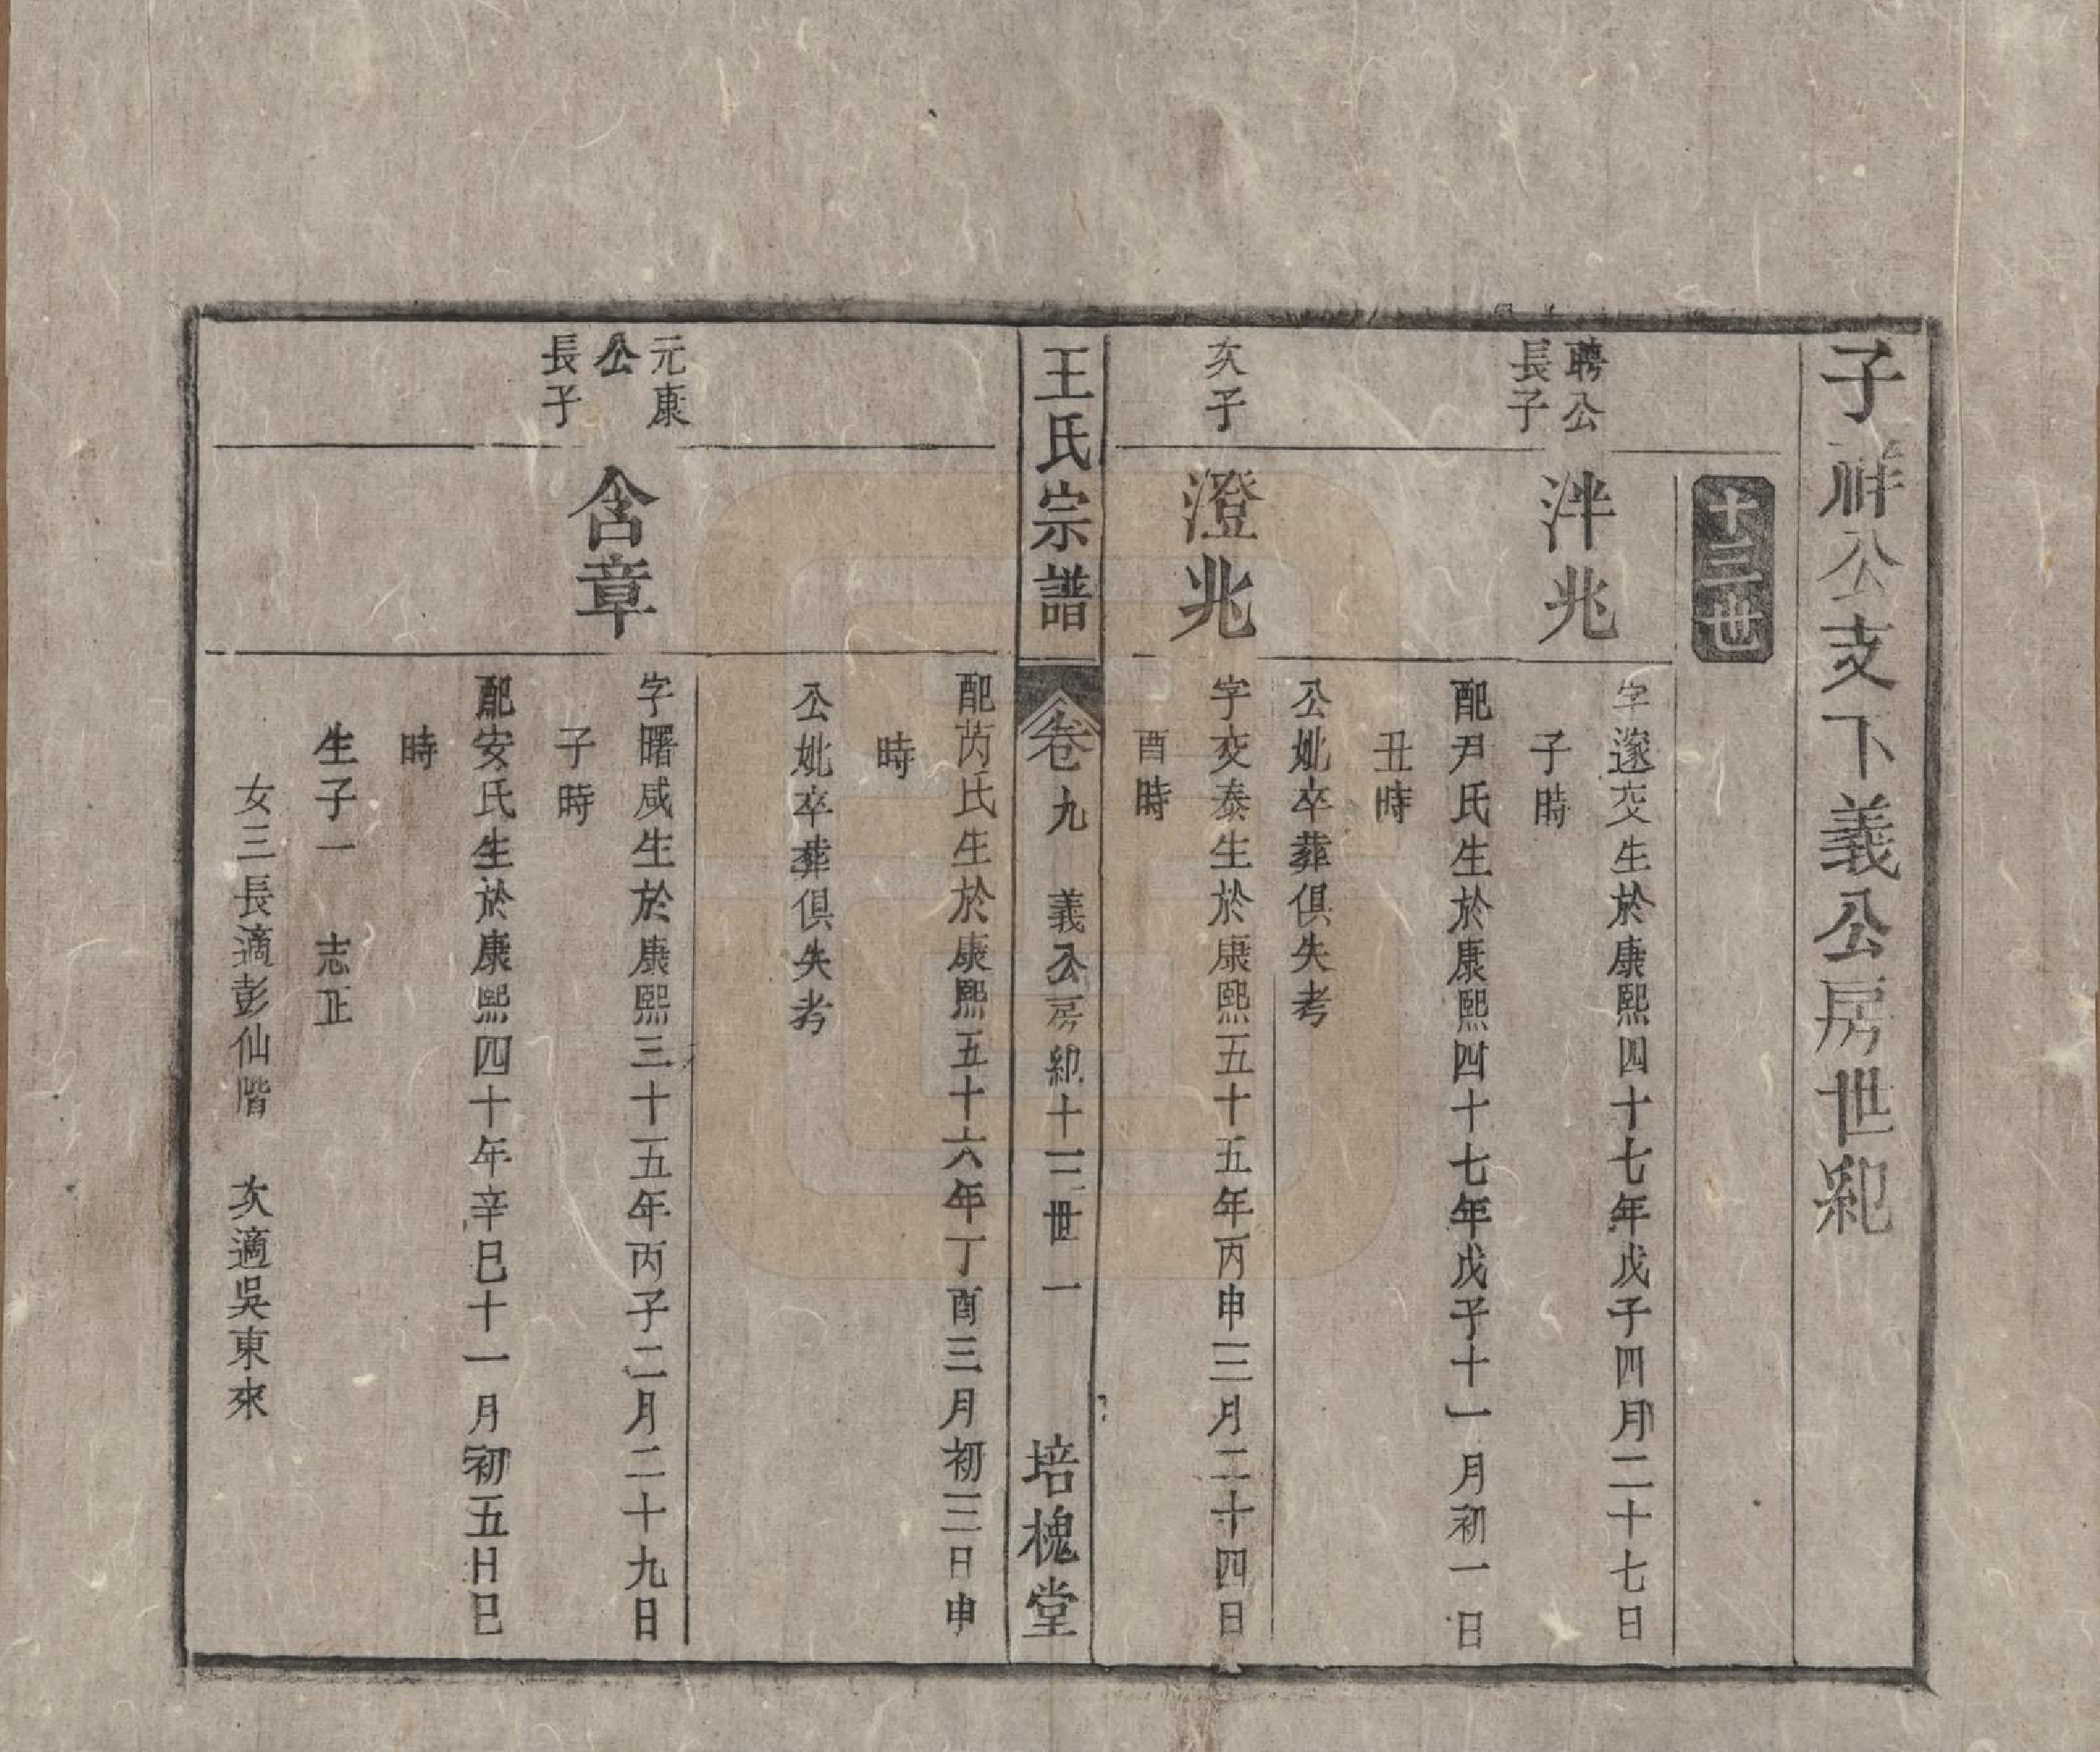 子祥公支下義公房世紀
十三世
聘公
長子
泮兆
字邃交生於康熙四十七年戊子四月二十七日
子時
配尹氏生於康熙四十七年戊子十一月初一日
丑時
公妣卒葬俱失考
次子
澄兆
字交泰生於康熙五十五年丙申三月二十四日
酉時
王氏宗譜
卷九 義公房紀十三世 一
培槐堂
配芮氏生於康熙五十六年丁酉三月初三日申
時
公妣卒葬俱失考
元康
公
長子
含章
字曙咸生於康熙三十五年丙子二月二十九日
子時
配安氏生於康熙四十年辛巳十一月初五日巳
時
生子一 志正
女三長適彭仙階 次適吳東來